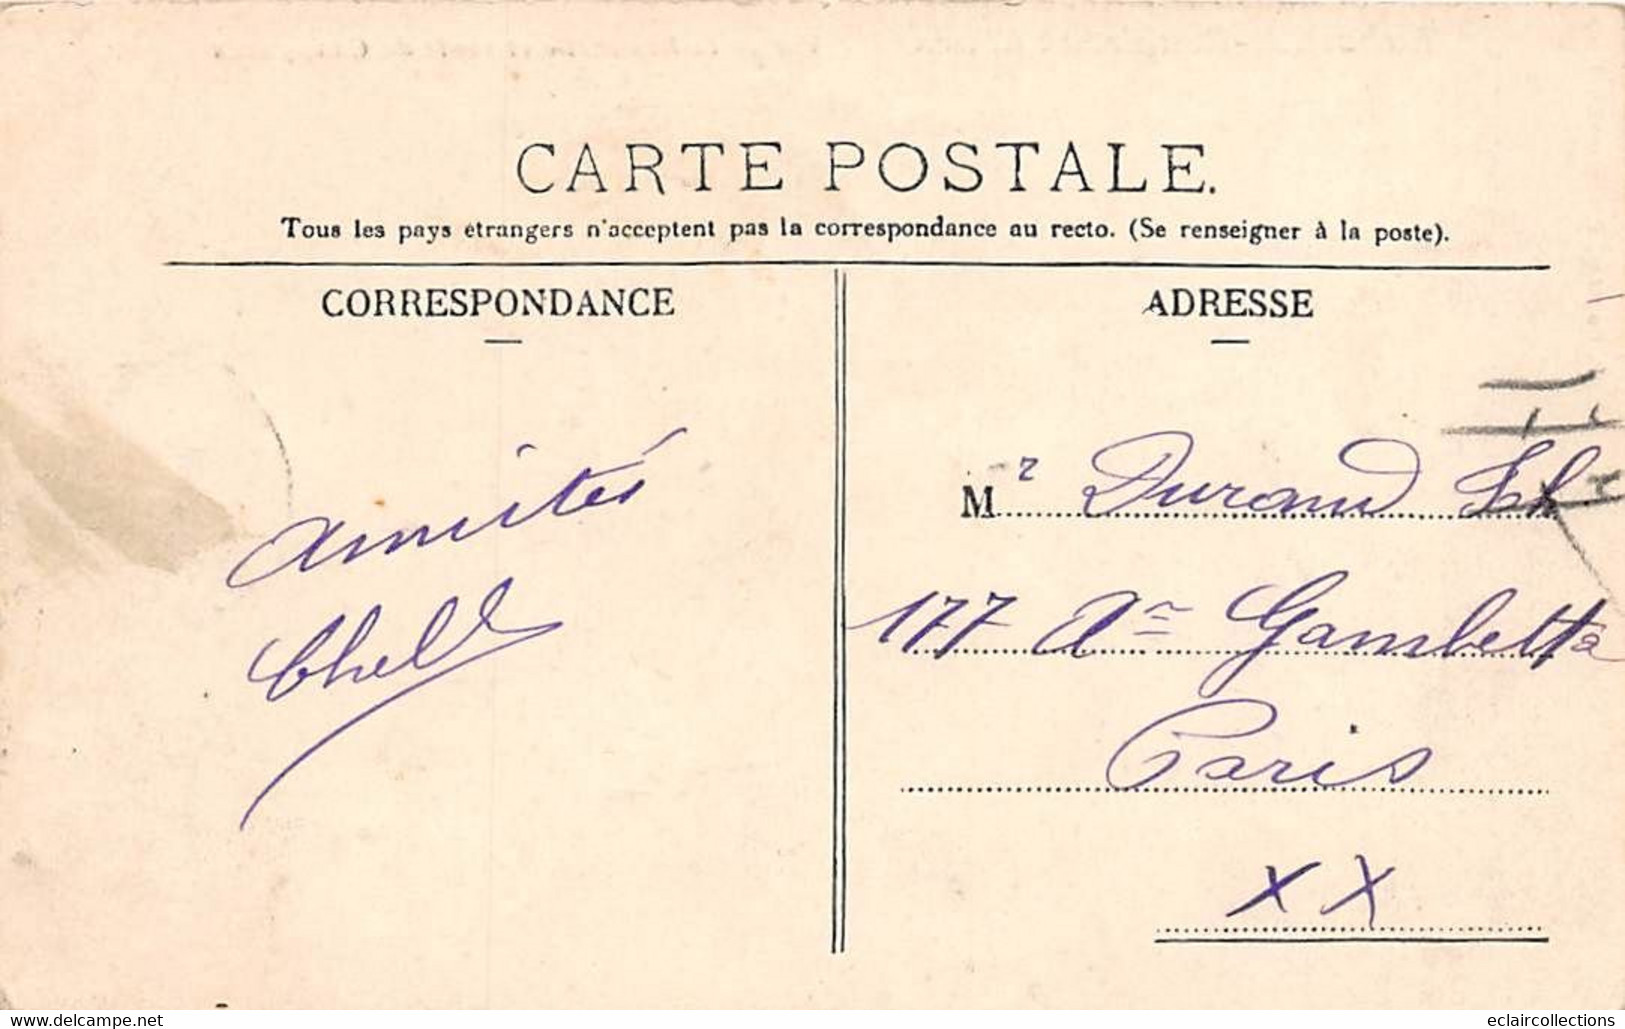 CARTE POSTALE.
Tous les pays étrangers n'acceptent pas la correspondance au recto. (Se renseigner à la poste).
CORRESPONDANCE
ADRESSE
amitiés
M r Durand
177 Aue Gambetta
Paris
XX
www.delcampe.net
eclaircollections